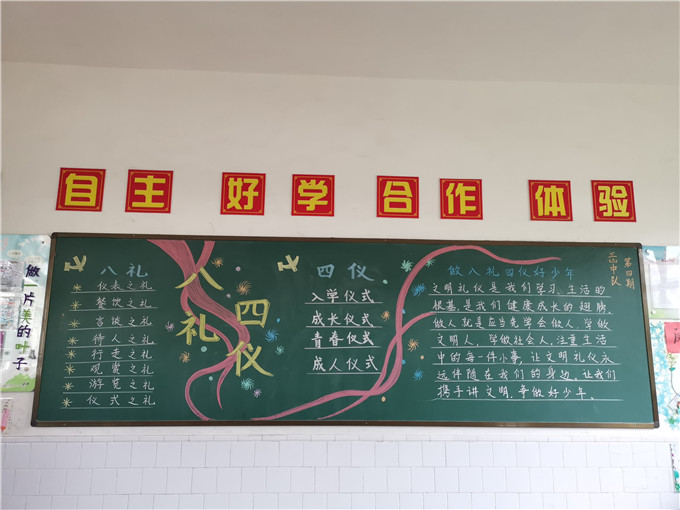 自主 好学 合作 体验
做一片美的叶子
八礼
仪表之礼
餐饮之礼
言谈之礼
待人之礼
行走之礼
观赏之礼
游览之礼
仪式之礼
八礼
四仪
四仪
入学仪式
成长仪式
青春仪式
成人仪式
做八礼四仪好少年
文明礼仪是我们学习、生活的
根基,是我们健康成长的翅膀.
做人就是应当先学会做人,学做
文明人,学做社会人,注重生活
中的每一件小事,让文明礼仪永
远伴随在我们的身边,让我们
携手讲文明.争做好少年.
第四期